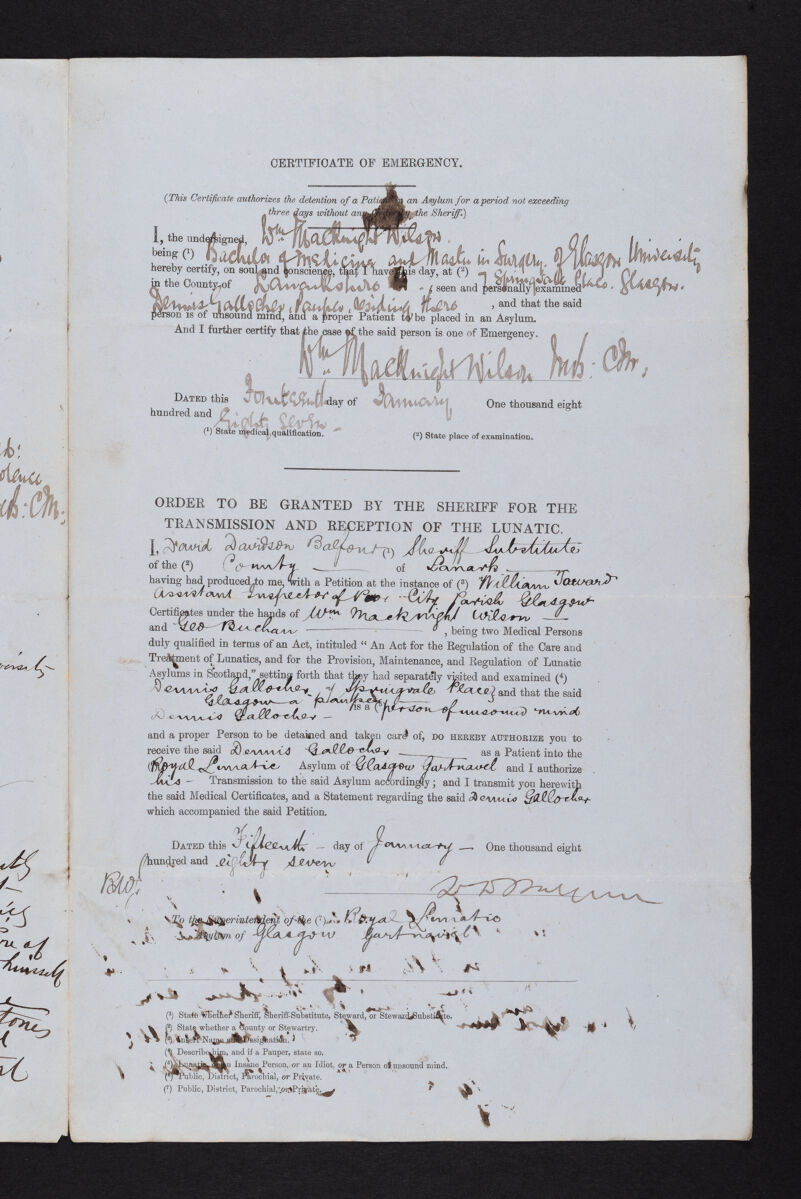 CERTIFICATE OF EMERGENCY.
(This Certificate authorizes the detention of a Patient in an Asylum for a period not exceeding
three days without any order by the Sheriff.)
I, the undersigned, Wm MacKnight Wilson.
being (1) Bachelor of Medicine and Master in Surgery. of Glasgow University
hereby certify, on soul and conscience, that I have this day, at (2) 7 Springvale Place. Glasgow.
in the County of Lanarkshire , seen and personally examined
Dennis Gallocher, Pauper, residing there , and that the said
person is of unsound mind, and a proper Patient to be placed in an Asylum.
And I further certify that the case of the said person is one of Emergency.
Wm MacKnight Wilson M.B: C.M.
DATED this Fourteenth day of January One thousand eight
hundred and Eighty seven -
(1) State medical qualification. (2) State place of examination.
ORDER TO BE GRANTED BY THE SHERIFF FOR THE
TRANSMISSION AND RECEPTION OF THE LUNATIC.
I, David Davidson Balfour (1) Sheriff Substitute
of the (2) County — of Lanark —
having had produced to me, with a Petition at the instance of (3) William Toward
Assistant Inspector of Poor City Parish Glasgow
Certificates under the hands of Wm MacKnight Wilson —
and Geo Buchan — , being two Medical Persons
duly qualified in terms of an Act, intituled "An Act for the Regulation of the Care and
Treatment of Lunatics, and for the Provision, Maintenance, and Regulation of Lunatic
Asylums in Scotland," setting forth that they had separately visited and examined (4)
Dennis Gallocher, 7 Springvale Place, and that the said
Glasgow a pauper
Dennis Gallocher - is a (5) person of unsound mind
and a proper Person to be detained and taken care of, DO HEREBY AUTHORIZE you to
receive the said Dennis Gallocher — as a Patient into the
(6) Royal Lunatic Asylum of Glasgow Gartnavel and I authorize
his - Transmission to the said Asylum accordingly; and I transmit you herewith
the said Medical Certificates, and a Statement regarding the said Dennis Gallocher
which accompanied the said Petition.
DATED this Fifteenth - day of January — One thousand eight
hundred and eighty seven
D D Balfour
To the Superintendent of the (7) Royal Lunatic
Asylum of Glasgow Gartnavel
(1) State whether Sheriff, Sheriff-Substitute, Steward, or Steward-Substitute.
(2) State whether a County or Stewartry.
(3) Insert Name and Designation.
(4) Describe him, and if a Pauper, state so.
(5) Lunatic, or an Insane Person, or an Idiot, or a Person of unsound mind.
(6) Public, District, Parochial, or Private.
(7) Public, District, Parochial, or Private.